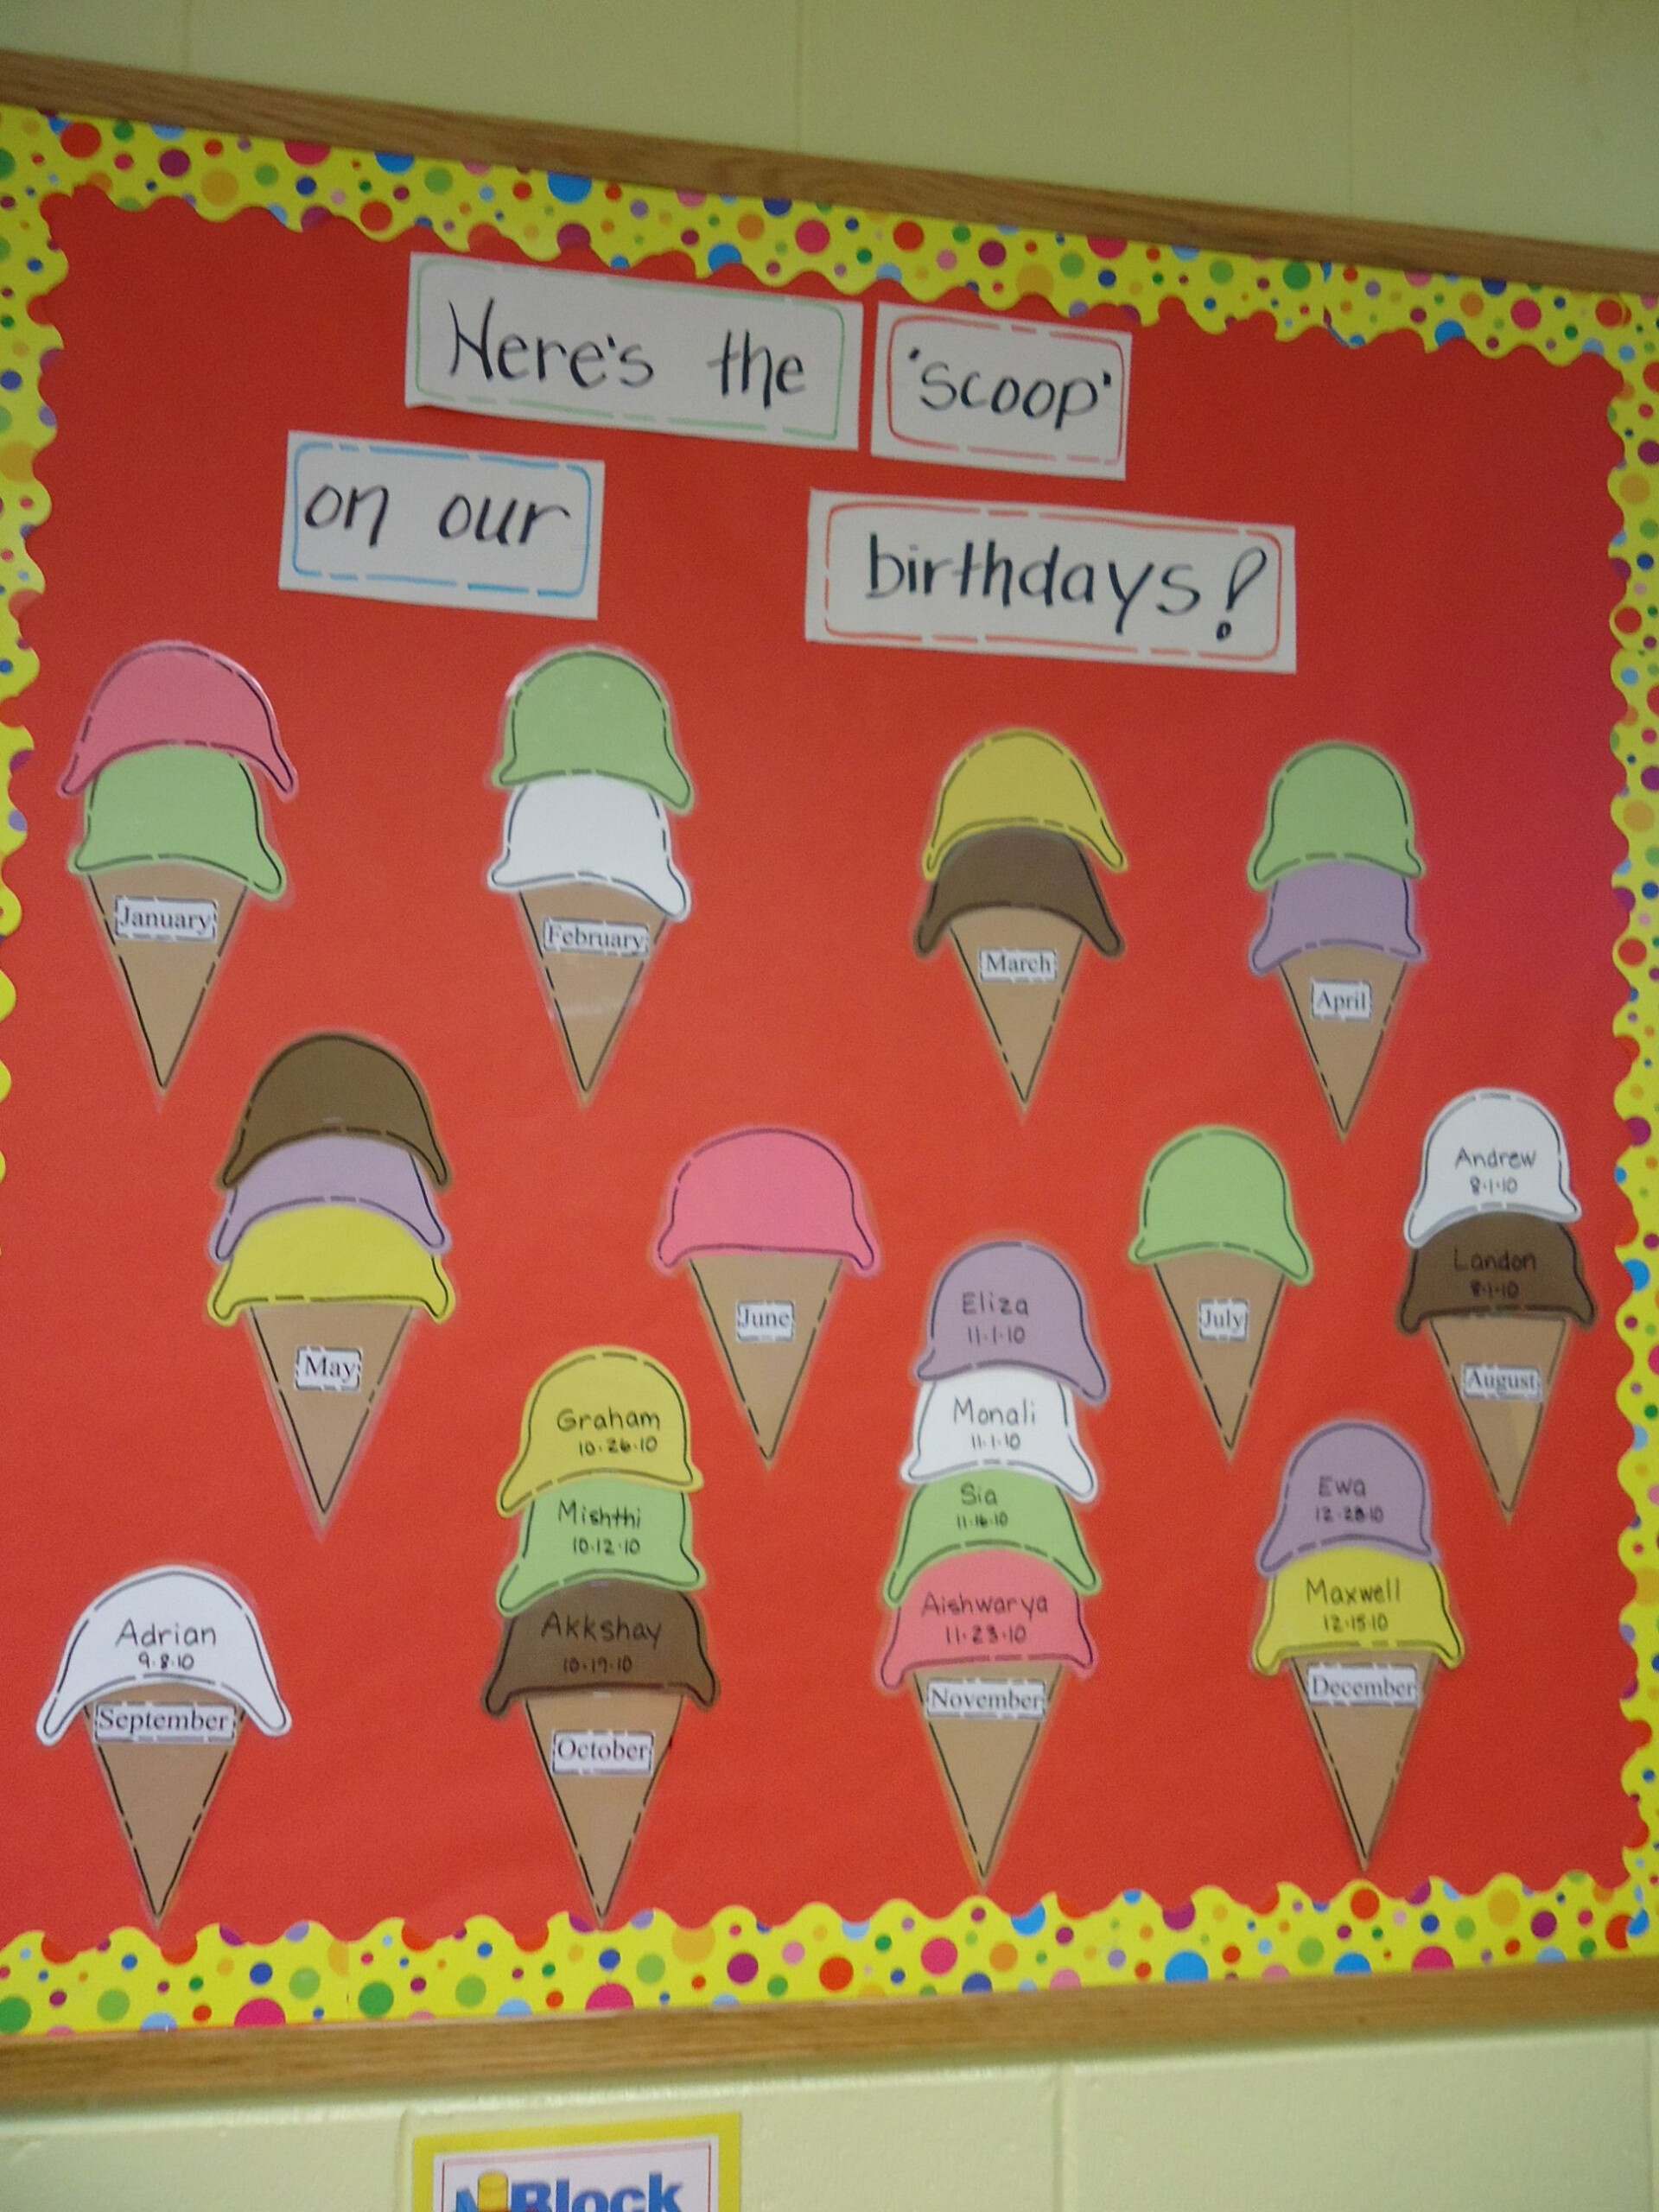 Here's the 'scoop'
on our birthdays!
January
February
March
April
May
June
July
Andrew
8·1·10
Landon
8·1·10
August
Adrian
9·8·10
September
Graham
10·26·10
Mishthi
10·12·10
Akkshay
10·19·10
October
Eliza
11·1·10
Monali
11·1·10
Sia
11·16·10
Aishwarya
11·23·10
November
Ewa
12·28·10
Maxwell
12·15·10
December
Block